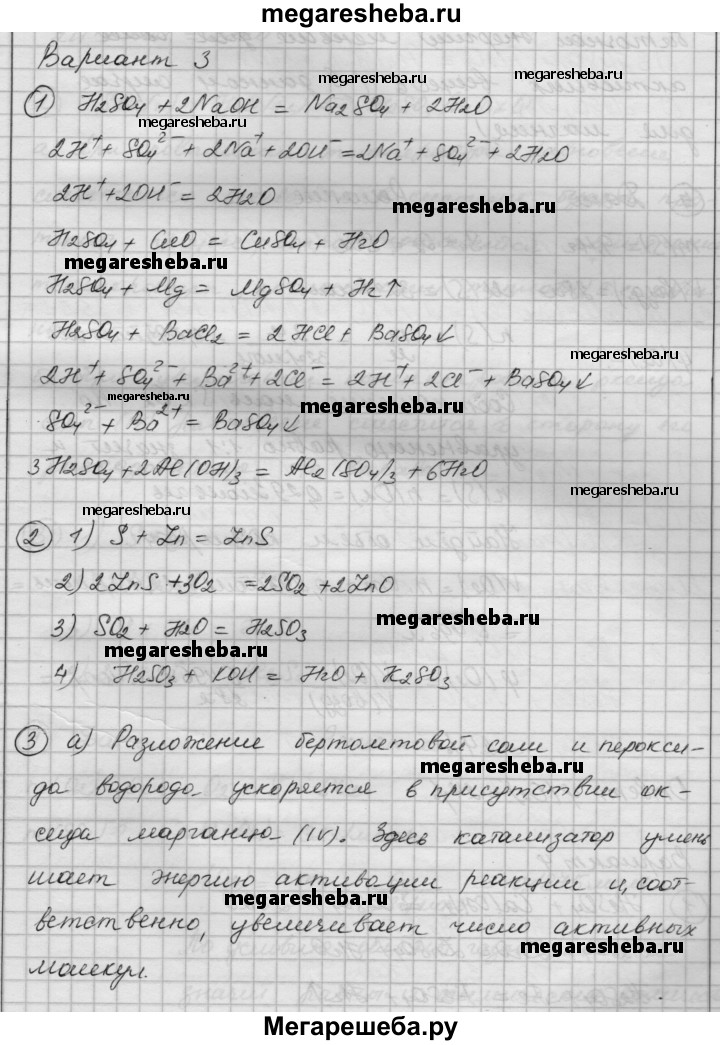 megaresheba.ru
Вариант 3
megaresheba.ru
megaresheba.ru
1 H2SO4 + 2NaOH = Na2SO4 + 2H2O
megaresheba.ru
2H⁺ + SO4²⁻ + 2Na⁺ + 2OH⁻ = 2Na⁺ + SO4²⁻ + 2H2O
2H⁺ + 2OH⁻ = 2H2O
megaresheba.ru
H2SO4 + CuO = CuSO4 + H2O
megaresheba.ru
H2SO4 + Mg = MgSO4 + H2↑
H2SO4 + BaCl2 = 2HCl + BaSO4↓
megaresheba.ru
2H⁺ + SO4²⁻ + Ba²⁺ + 2Cl⁻ = 2H⁺ + 2Cl⁻ + BaSO4↓
megaresheba.ru
megaresheba.ru
SO4²⁻ + Ba²⁺ = BaSO4↓
3H2SO4 + 2Al(OH)3 = Al2(SO4)3 + 6H2O
megaresheba.ru
megaresheba.ru
2 1) S + Zn = ZnS
2) 2ZnS + 3O2 = 2SO2 + 2ZnO
megaresheba.ru
3) SO2 + H2O = H2SO3
megaresheba.ru
4) H2SO3 + KOH = H2O + K2SO3
3 а) Разложение бертолетовой соли и перокси-
megaresheba.ru
да водорода ускоряется в присутствии ок-
сида марганца (IV). Здесь катализатор умень
шает энергию активации реакции и, соот-
megaresheba.ru
ветственно, увеличивает число активных
megaresheba.ru
молекул.
Мегарешеба.ру